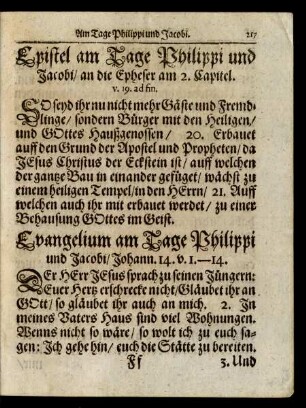 Am Tage Philippi und Jacobi. 217
Epistel am Tage Philippi und
Jacobi/ an die Epheser am 2. Capitel.
v. 19. ad fin.
SO seyd ihr nu nicht mehr Gäste und Fremd-
linge/ sondern Bürger mit den Heiligen/
und GOttes Haußgenossen/ 20. Erbauet
auff den Grund der Apostel und Propheten/ da
JEsus Christus der Eckstein ist/ auff welchen
der gantze Bau in einander gefüget/ wächst zu
einem heiligen Tempel/ in den HErrn/ 21. Auff
welchen auch ihr mit erbauet werdet/ zu einer
Behausung GOttes im Geist.
Evangelium am Tage Philippi
und Jacobi/ Johann. 14. v. 1.—14.
DEr HErr JEsus sprach zu seinen Jüngern:
Euer Hertz erschrecke nicht/ Gläubet ihr an
GOtt/ so gläubet ihr auch an mich. 2. In
meines Vaters Haus sind viel Wohnungen.
Wenns nicht so wäre/ so wolt ich zu euch sa-
gen: Ich gehe hin/ euch die Stätte zu bereiten.
Ff 3. Und